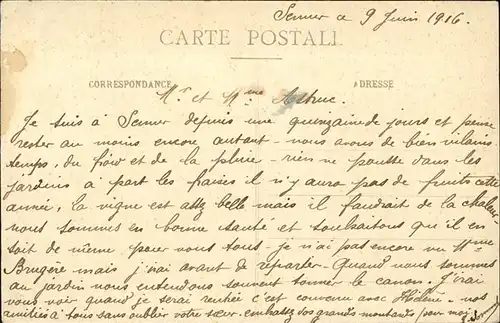 9 Juin 1916.
CARTE POSTALE
CORRESPONDANCE
ADRESSE
Mr et Mme Astruc.
Je suis à depuis une quinzaine de jours et pense
rester au moins encore autant - nous avons de bien vilains
temps, du froid et de la pluie - rien ne pousse dans les
jardins à part les fraises il n'y aura pas de fruits cette
année, la vigne est assez belle mais il faudrait de la chaleur
nous sommes en bonne santé et souhaitons qu'il en
soit de même pour vous tous - Je n'ai pas encore vu Mme
Brugère mais j'irai avant de repartir - Quand nous sommes
au jardin nous entendons souvent tonner le canon - J'irai
vous voir quand je serai rentrée c'est convenu avec Hélène - nos
amitiés à tous sans oublier votre sœur. embrassez vos grands moutards pour moi.